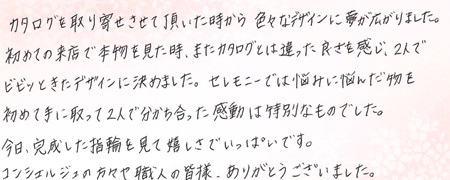 カタログを取り寄せさせて頂いた時から 色々なデザインに夢が広がりました。
初めての来店で本物を見た時、またカタログとは違った良さを感じ、2人で
ビビッときたデザインに決めました。セレモニーでは悩みに悩んだ物を
初めて手に取って2人で分かち合った感動は特別なものでした。
今日、完成した指輪を見て嬉しさでいっぱいです。
コンシェルジュの方々や職人の皆様、ありがとうございました。